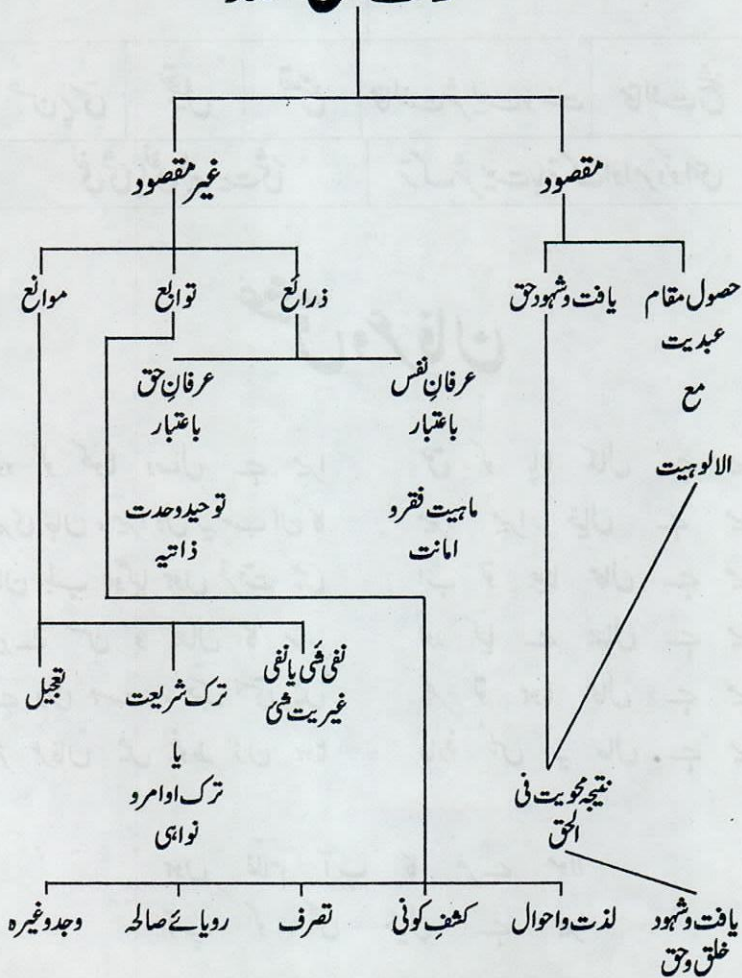 مقصود
غیر مقصود
حصول مقام
عبدیت
مع
الالوہیت
یافت و شہود حق
ذرائع
توابع
موانع
عرفانِ نفس
باعتبار
ماہیت فقر و
امانت
عرفانِ حق
باعتبار
توحید وحدت
ذاتیہ
نفی شئی یا نفی
غیریت شئی
ترک شریعت
یا
ترک اوامر و
نواہی
تعجیل
نتیجہ محویت فی
الحق
یافت و شہود
خلق و حق
لذت و احوال
کشفِ کونی
تصرف
رویائے صالحہ
وجد وغیرہ